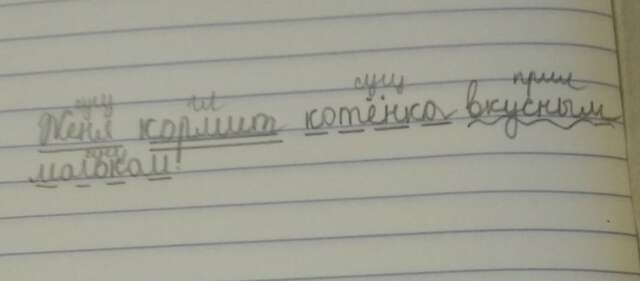 сущ гл сущ прил
Женя кормит котёнка вкусным
сущ
мольком.